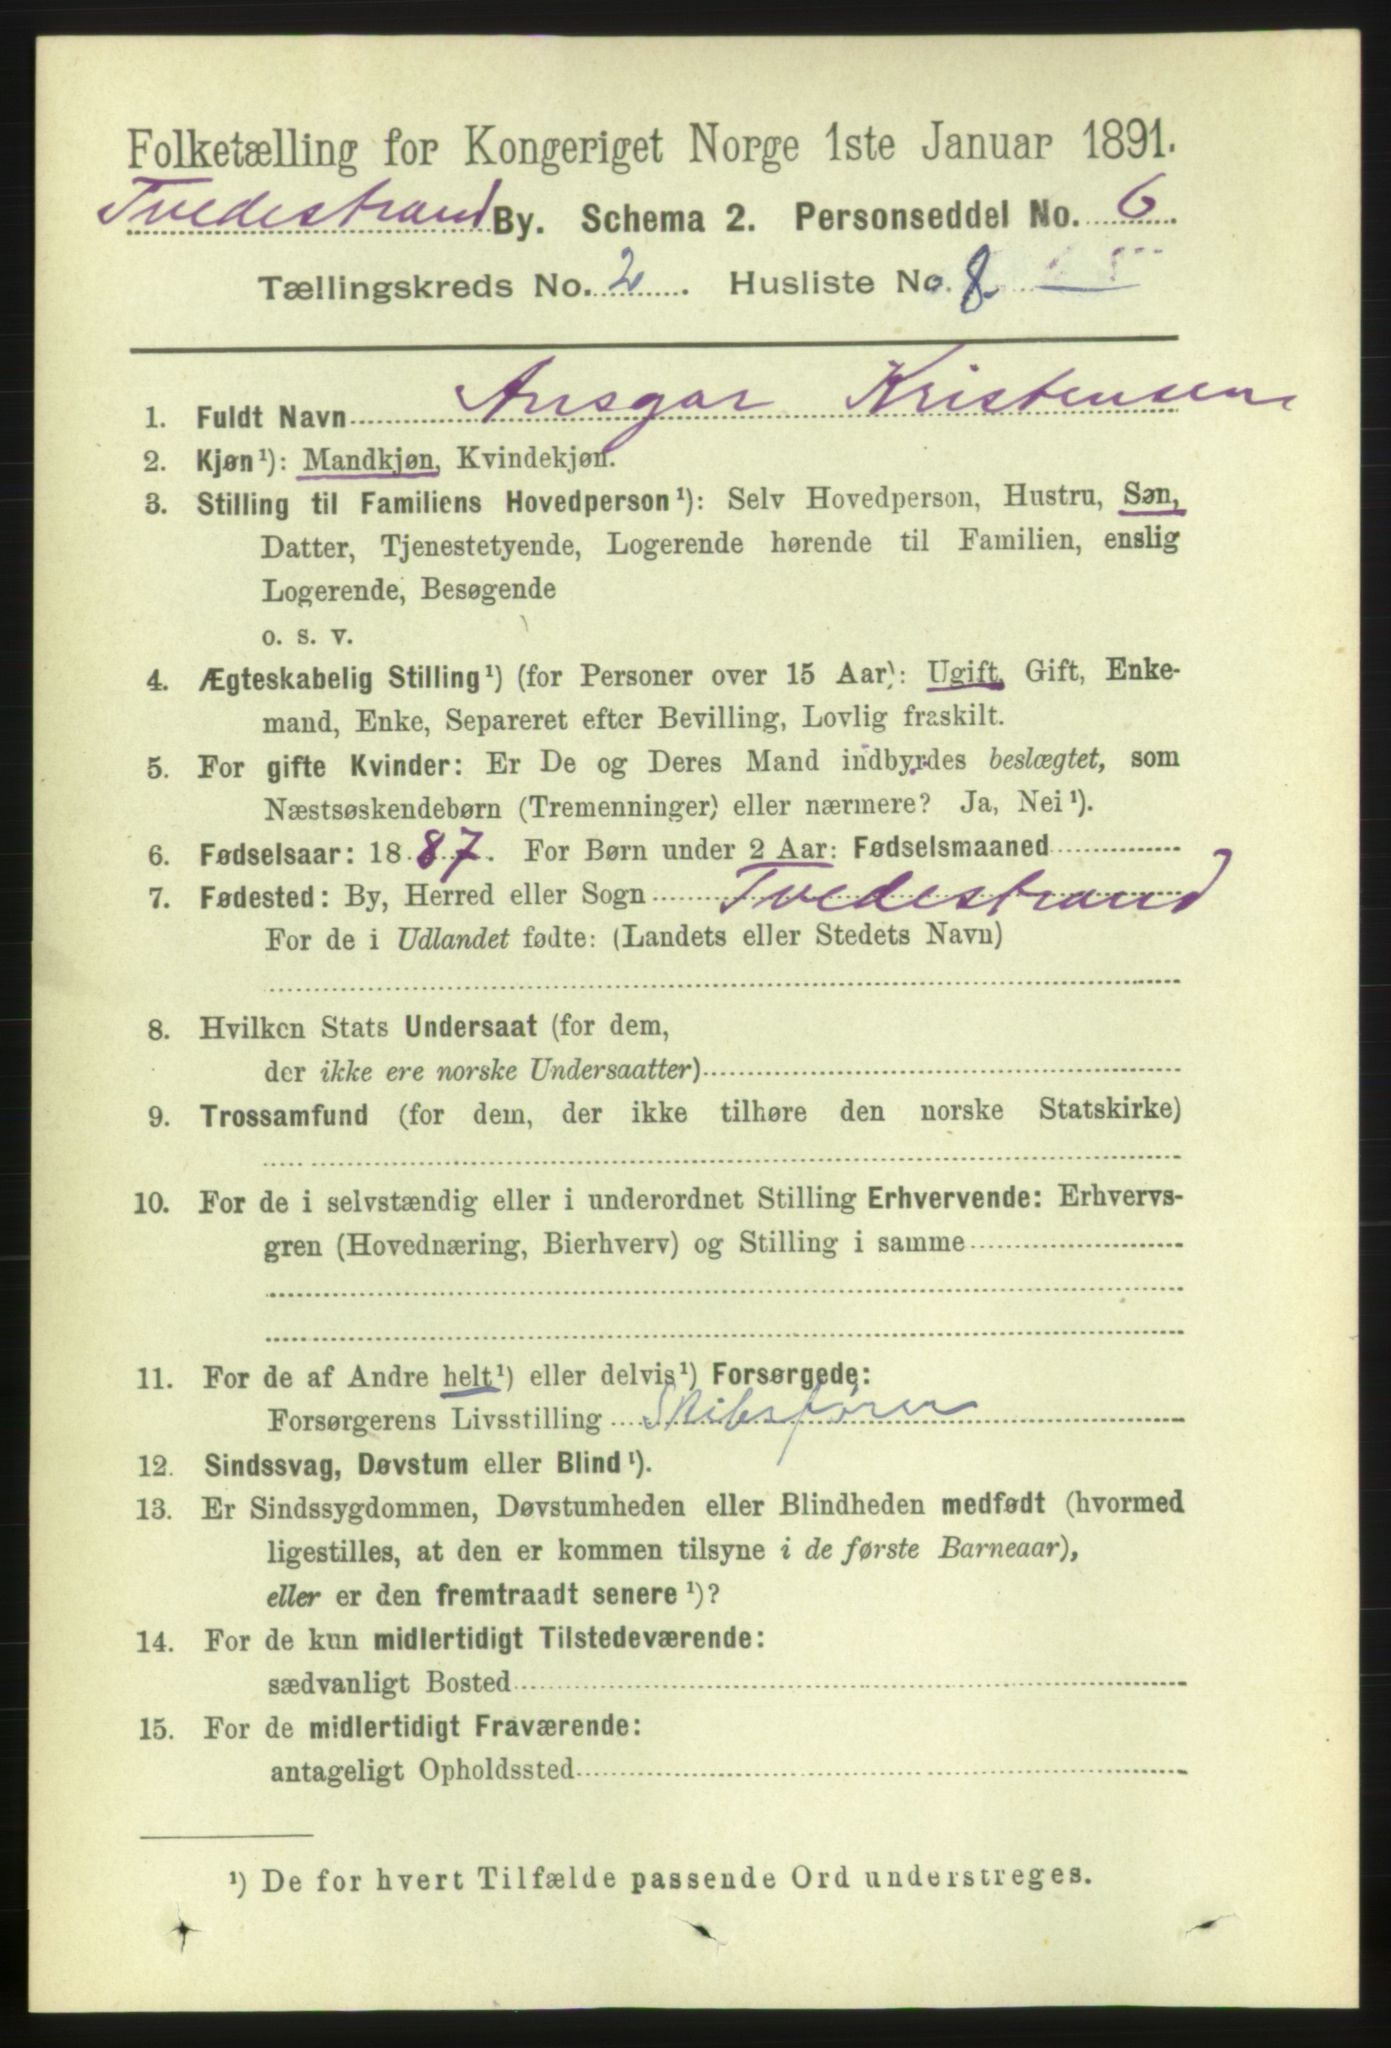 Folketælling for Kongeriget Norge 1ste Januar 1891.
Tvedestrand By. Schema 2. Personseddel No. 6
Tællingskreds No. 2. Husliste No. 8
1. Fuldt Navn Ansgar Kristensen
2. Kjøn¹): Mandkjøn, Kvindekjøn.
3. Stilling til Familiens Hovedperson¹): Selv Hovedperson, Hustru, Søn,
Datter, Tjenestetyende, Logerende hørende til Familien, enslig
Logerende, Besøgende
o. s. v.
4. Ægteskabelig Stilling¹) (for Personer over 15 Aar): Ugift, Gift, Enke-
mand, Enke, Separeret efter Bevilling, Lovlig fraskilt.
5. For gifte Kvinder: Er De og Deres Mand indbyrdes beslægtet, som
Næstsøskendebørn (Tremenninger) eller nærmere? Ja, Nei¹).
6. Fødselsaar: 1887. For Børn under 2 Aar: Fødselsmaaned
7. Fødested: By, Herred eller Sogn Tvedestrand
For de i Udlandet fødte: (Landets eller Stedets Navn)
8. Hvilken Stats Undersaat (for dem,
der ikke ere norske Undersaatter)
9. Trossamfund (for dem, der ikke tilhøre den norske Statskirke)
10. For de i selvstændig eller i underordnet Stilling Erhvervende: Erhvervs-
gren (Hovednæring, Bierhverv) og Stilling i samme
11. For de af Andre helt¹) eller delvis¹) Forsørgede:
Forsørgerens Livsstilling Skibsfører
12. Sindssvag, Døvstum eller Blind¹).
13. Er Sindssygdommen, Døvstumheden eller Blindheden medfødt (hvormed
ligestilles, at den er kommen tilsyne i de første Barneaar),
eller er den fremtraadt senere¹)?
14. For de kun midlertidigt Tilstedeværende:
sædvanligt Bosted
15. For de midlertidigt Fraværende:
antageligt Opholdssted
¹) De for hvert Tilfælde passende Ord understreges.